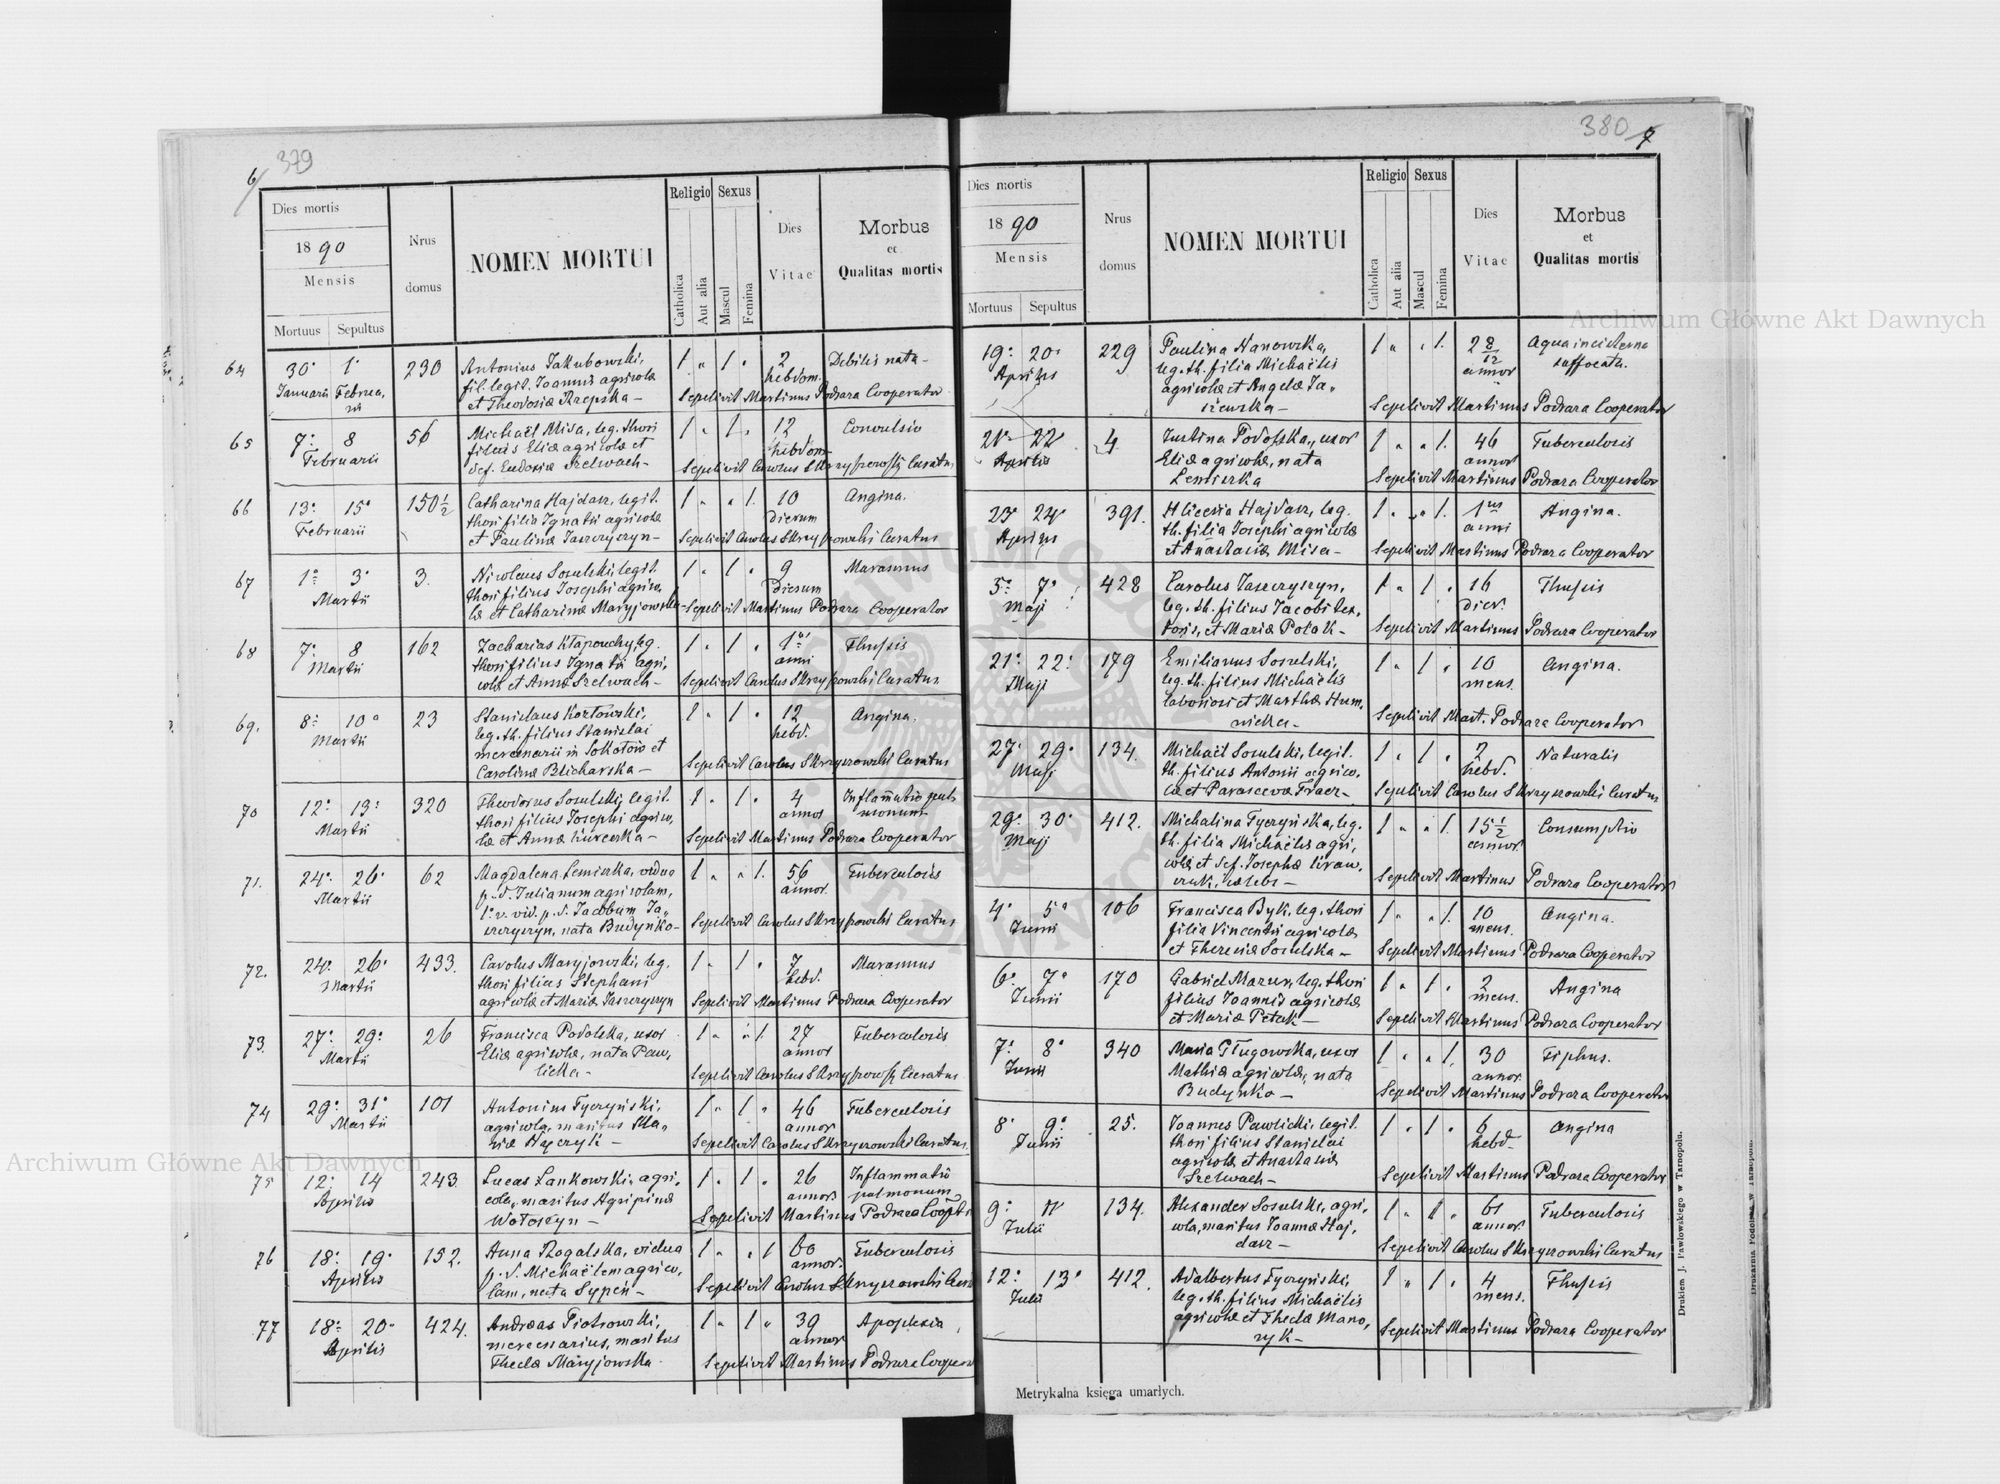 6/ 379
Dies mortis
1890
Mensis
Mortuus Sepultus
Nrus domus
NOMEN MORTUI
Religio
Catholica
Aut alia
Sexus
Mascul
Femina
Dies Vitae
Morbus
et
Qualitas mortis
64 30. 1. 230 Antonius Jakubowski, 1 " 1 " 2 Debilis nata
Januarii Februa, fil. legit. Joannis agricolæ hebdom.
rii et Theodosiæ Rzepska – Sepelivit Martinus Podrara Cooperator
65 7. 8 56 Michaël Misa, leg. thori 1 " 1 " 12 Convulsio
Februarii filius Eliæ agricolæ et hebdom.
def. Eudoxiæ Szelwach – Sepelivit Carolus Skrzyszowski Curatus
66 13. 15. 150½ Catharina Hajdasz, legit. 1 " " 1 10 Angina.
Februarii thori filia Ignatii agricolæ Dierum
et Paulinæ Jaszczyszyn – Sepelivit Carolus Skrzyszowski Curatus
67 1. 3. 3. Nicolaus Sosulski, legit. 1 " 1 " 9 Marasmus
Martii thori filius Josephi agrico, Dierum
læ et Catharinæ Maryjowska – Sepelivit Martinus Podrara Cooperator
68 7. 8 162 Zacharias Kłapouchy, leg. 1 " 1 " 1 Thussis
Martii thori filius Ignatii agri, anni
colæ et Annæ Szelwach – Sepelivit Carolus Skrzyszowski Curatus
69. 8. 10. 23 Stanislaus Kozłowski, 1 " 1 " 12 Angina.
Martii leg. th. filius Stanislai hebd.
mercenarii in Sokołów et
Carolinæ Blicharska – Sepelivit Carolus Skrzyszowski Curatus
70 12. 13. 320 Theodorus Sosulski, legit. 1 " 1 " 4 Inflammatio pul
Martii thori filius Josephi agrico, annor monum
læ et Annæ Kurcerka – Sepelivit Martinus Podrara Cooperator
71. 24. 26. 62 Magdalena Lemiszka, vidua 1 " " 1. 56 Tuberculosis
Martii p. d. Julianum agricolam, annor.
1. v. vid. p. d. Jacobum Ja,
szczyszyn, nata Budynko – Sepelivit Carolus Skrzyszowski Curatus
72. 24. 26. 433. Carolus Maryjowski, leg. 1 " 1 " 7 Marasmus
Martii thori filius Stephani hebd.
agricolæ et Mariæ Jaszczyszyn Sepelivit Martinus Podrara Cooperator
73. 27. 29. 26 Francisca Podolska, uxor 1 " " 1. 27 Tuberculosis
Martii Eliæ agricolæ, nata Paw, annor
licka – Sepelivit Carolus Skrzyszowski Curatus
74 29. 31. 101 Antonius Tyczyński, 1 " 1 " 46 Tuberculosis
Martii agricola, maritus Ma, annor
riæ – Sepelivit Carolus Skrzyszowski Curatus
75 12. 14 243. Lucas Lankowski, agri, 1 " 1 " 26 Inflammatio
Aprilis cola, maritus Agripinæ annor. pulmonum
Wołoszyn – Sepelivit Martinus Podrara Coopt
76 18. 19. 152. Anna Rogalska, vidua 1 " " 1 60 Tuberculosis
Aprilis p. d. Michaëlem agrico, annor.
lam, nata Sypeń – Sepelivit Carolus Skrzyszowski Curat
77 18. 20. 424. Andreas Piotrowski, 1 " 1 " 39 Apoplexia
Aprilis mercenarius, maritus annor
Theclæ Maryjowska. Sepelivit Martinus Podrara Cooperat
380 7
Dies mortis
1890
Mensis
Mortuus Sepultus
Nrus domus
NOMEN MORTUI
Religio
Catholica
Aut alia
Sexus
Mascul
Femina
Dies Vitae
Morbus
et
Qualitas mortis
19. 20. 229 Paulina Hanowska, 1 " " 1. 2 8/12 Aqua in cisterna
Aprilis leg. th. filia Michaëlis annor suffocata.
agricolæ et Angelæ Ja,
Sepelivit Martinus Podrara Cooperator
21. 22. 4. Justina Podolska, uxor 1 " " 1. 46 Tuberculosis
Aprilis Eliæ agricolæ, nata annor
Lemiszka Sepelivit Martinus Podrara Cooperator
23. 24. 391. Hliceria Hajdasz, leg. 1 " " 1. 1us Angina.
Aprilis th. filia Josephi agricolæ anni
et Anastasiæ Misa – Sepelivit Martinus Podrara Cooperator
5. 7. 428 Carolus Jaszczyszyn, 1 " 1 " 16 Thussis
Maji leg. th. filius Jacobi tex, dier.
toris, et Mariæ Polak – Sepelivit Martinus Podrara Cooperator
21. 22. 179 Emilianus Sosulski, 1 " 1 " 10 Angina.
Maji leg. th. filius Michaëlis mens.
laboriosi et Marthæ Hum,
nicka – Sepelivit Mart. Podrara Cooperator
27. 29. 134. Michaël Sosulski, legit. 1 " 1 " 2 Naturalis
Maji th. filius Antonii agrico, hebd.
læ et Parascevæ Tracz – Sepelivit Carolus Skrzyszowski Curatus
29. 30. 412. Michalina Tyczyńska, leg. 1 " " 1. 15½ Consumptio
Maji th. filia Michaëlis agri, annor.
colæ et def. Josephæ Kraw,
– Sepelivit Martinus Podrara Cooperator
4. 5. 106 Francisca Byk, leg. thori 1 " " 1. 10 Angina.
Junii filia Vincentii agricolæ mens.
et Theresiæ Sosulska – Sepelivit Martinus Podrara Cooperator
6. 7. 170 Gabriel Mazur, leg. thori 1 " 1 " 2 Angina
Junii filius Joannis agricolæ mens.
et Mariæ Petak – Sepelivit Martinus Podrara Cooperator
7. 8. 340 Maria Długowska, uxor 1 " " 1. 30 Tiphus.
Junii Mathiæ agricolæ, nata annor.
Budynko – Sepelivit Martinus Podrara Cooperator
8. 9. 25. Joannes Pawlicki, legit. 1 " 1 " 6 Angina
Junii thori filius Stanislai hebd.
agricolæ et Anastasiæ
Szelwach – Sepelivit Martinus Podrara Cooperator
9. 11. 134. Alexander Sosulski, agri, 1 " 1 " 61 Tuberculosis
Julii cola, maritus Joannæ Haj, annor.
dasz – Sepelivit Carolus Skrzyszowski Curatus
12. 13. 412. Adalbertus Tyczyński, 1 " 1 " 4 Thussis
Julii leg. th. filius Michaëlis mens.
agricolæ et Theclæ Mano,
ryk – Sepelivit Martinus Podrara Cooperator
Metrykalna księga umarłych.
Drukiem J. Pawłowskiego w Tarnopolu.
Archiwum Główne Akt Dawnych
Archiwum Główne Akt Dawnych